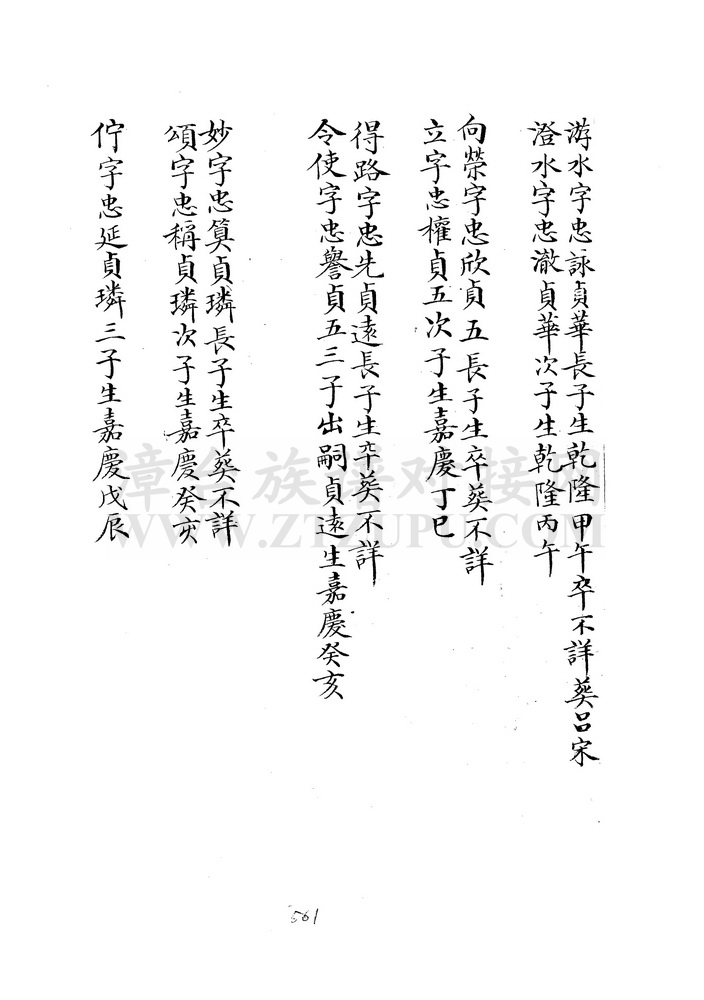 游水字忠詠貞華長子生乾隆甲午卒不詳葬呂宋
澄水字忠澈貞華次子生乾隆丙午
向榮字忠欣貞五長子生卒葬不詳
立字忠權貞五次子生嘉慶丁巳
得路字忠先貞遠長子生卒葬不詳
令使字忠譽貞五三子出嗣貞遠生嘉慶癸亥
妙字忠算貞璘長子生卒葬不詳
頌字忠稱貞璘次子生嘉慶癸亥
佇字忠延貞璘三子生嘉慶戊辰
漳台族谱对接网
WWW.ZTZUPU.COM
561